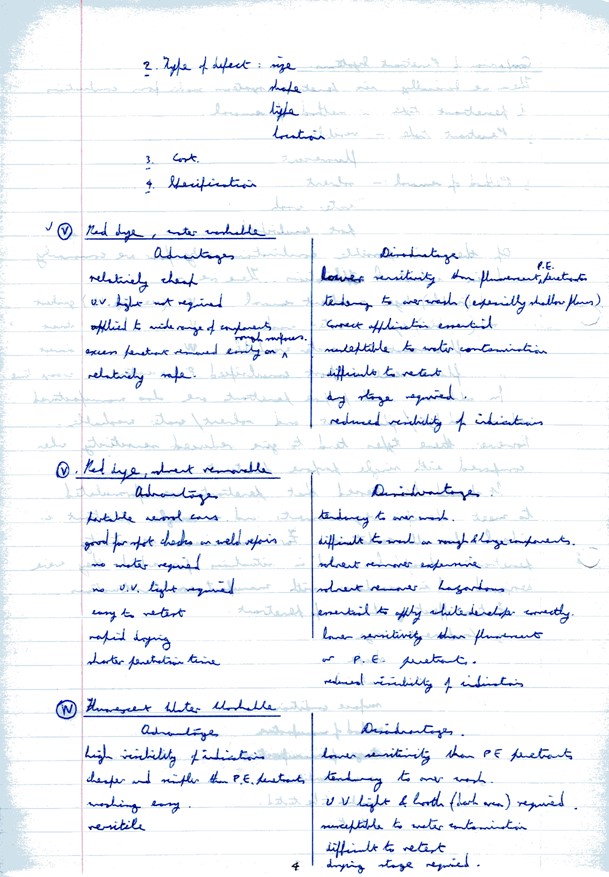 2. Type of defect : size
shape
type
location
3. Cost.
4. Specification
(V) Red dye, water washable
Advantages
relatively cheap
U.V. light not required
applied to wide range of components
excess penetrant removed easily on rough surfaces.
relatively safe.
Disadvantage
lower sensitivity than fluorescent, P.E. penetrants
tendency to over wash (especially shallow flaws)
correct application essential
susceptible to water contamination
difficult to retest
dry stage required.
reduced visibility of indications
(V). Red dye, solvent removable
Advantages
portable aerosol cans
good for spot checks on weld repairs
no water required
no U.V. light required
easy to retest
rapid drying
shorter penetration time
Disadvantages.
tendency to over wash.
difficult to wash on rough & large components.
solvent remover expensive
solvent remover hazardous
essential to apply white developer correctly.
lower sensitivity than fluorescent
or P.E. penetrants.
reduced visibility of indications
(IV) Fluorescent Water Washable
Advantages
high visibility of indications
cheaper and simpler than P.E. penetrants
washing easy.
versitile
Disadvantages.
lower sensitivity than P E penetrants
tendency to over wash.
U.V light & booth (dark area) required.
susceptible to water contamination
difficult to retest
drying stage required.
4